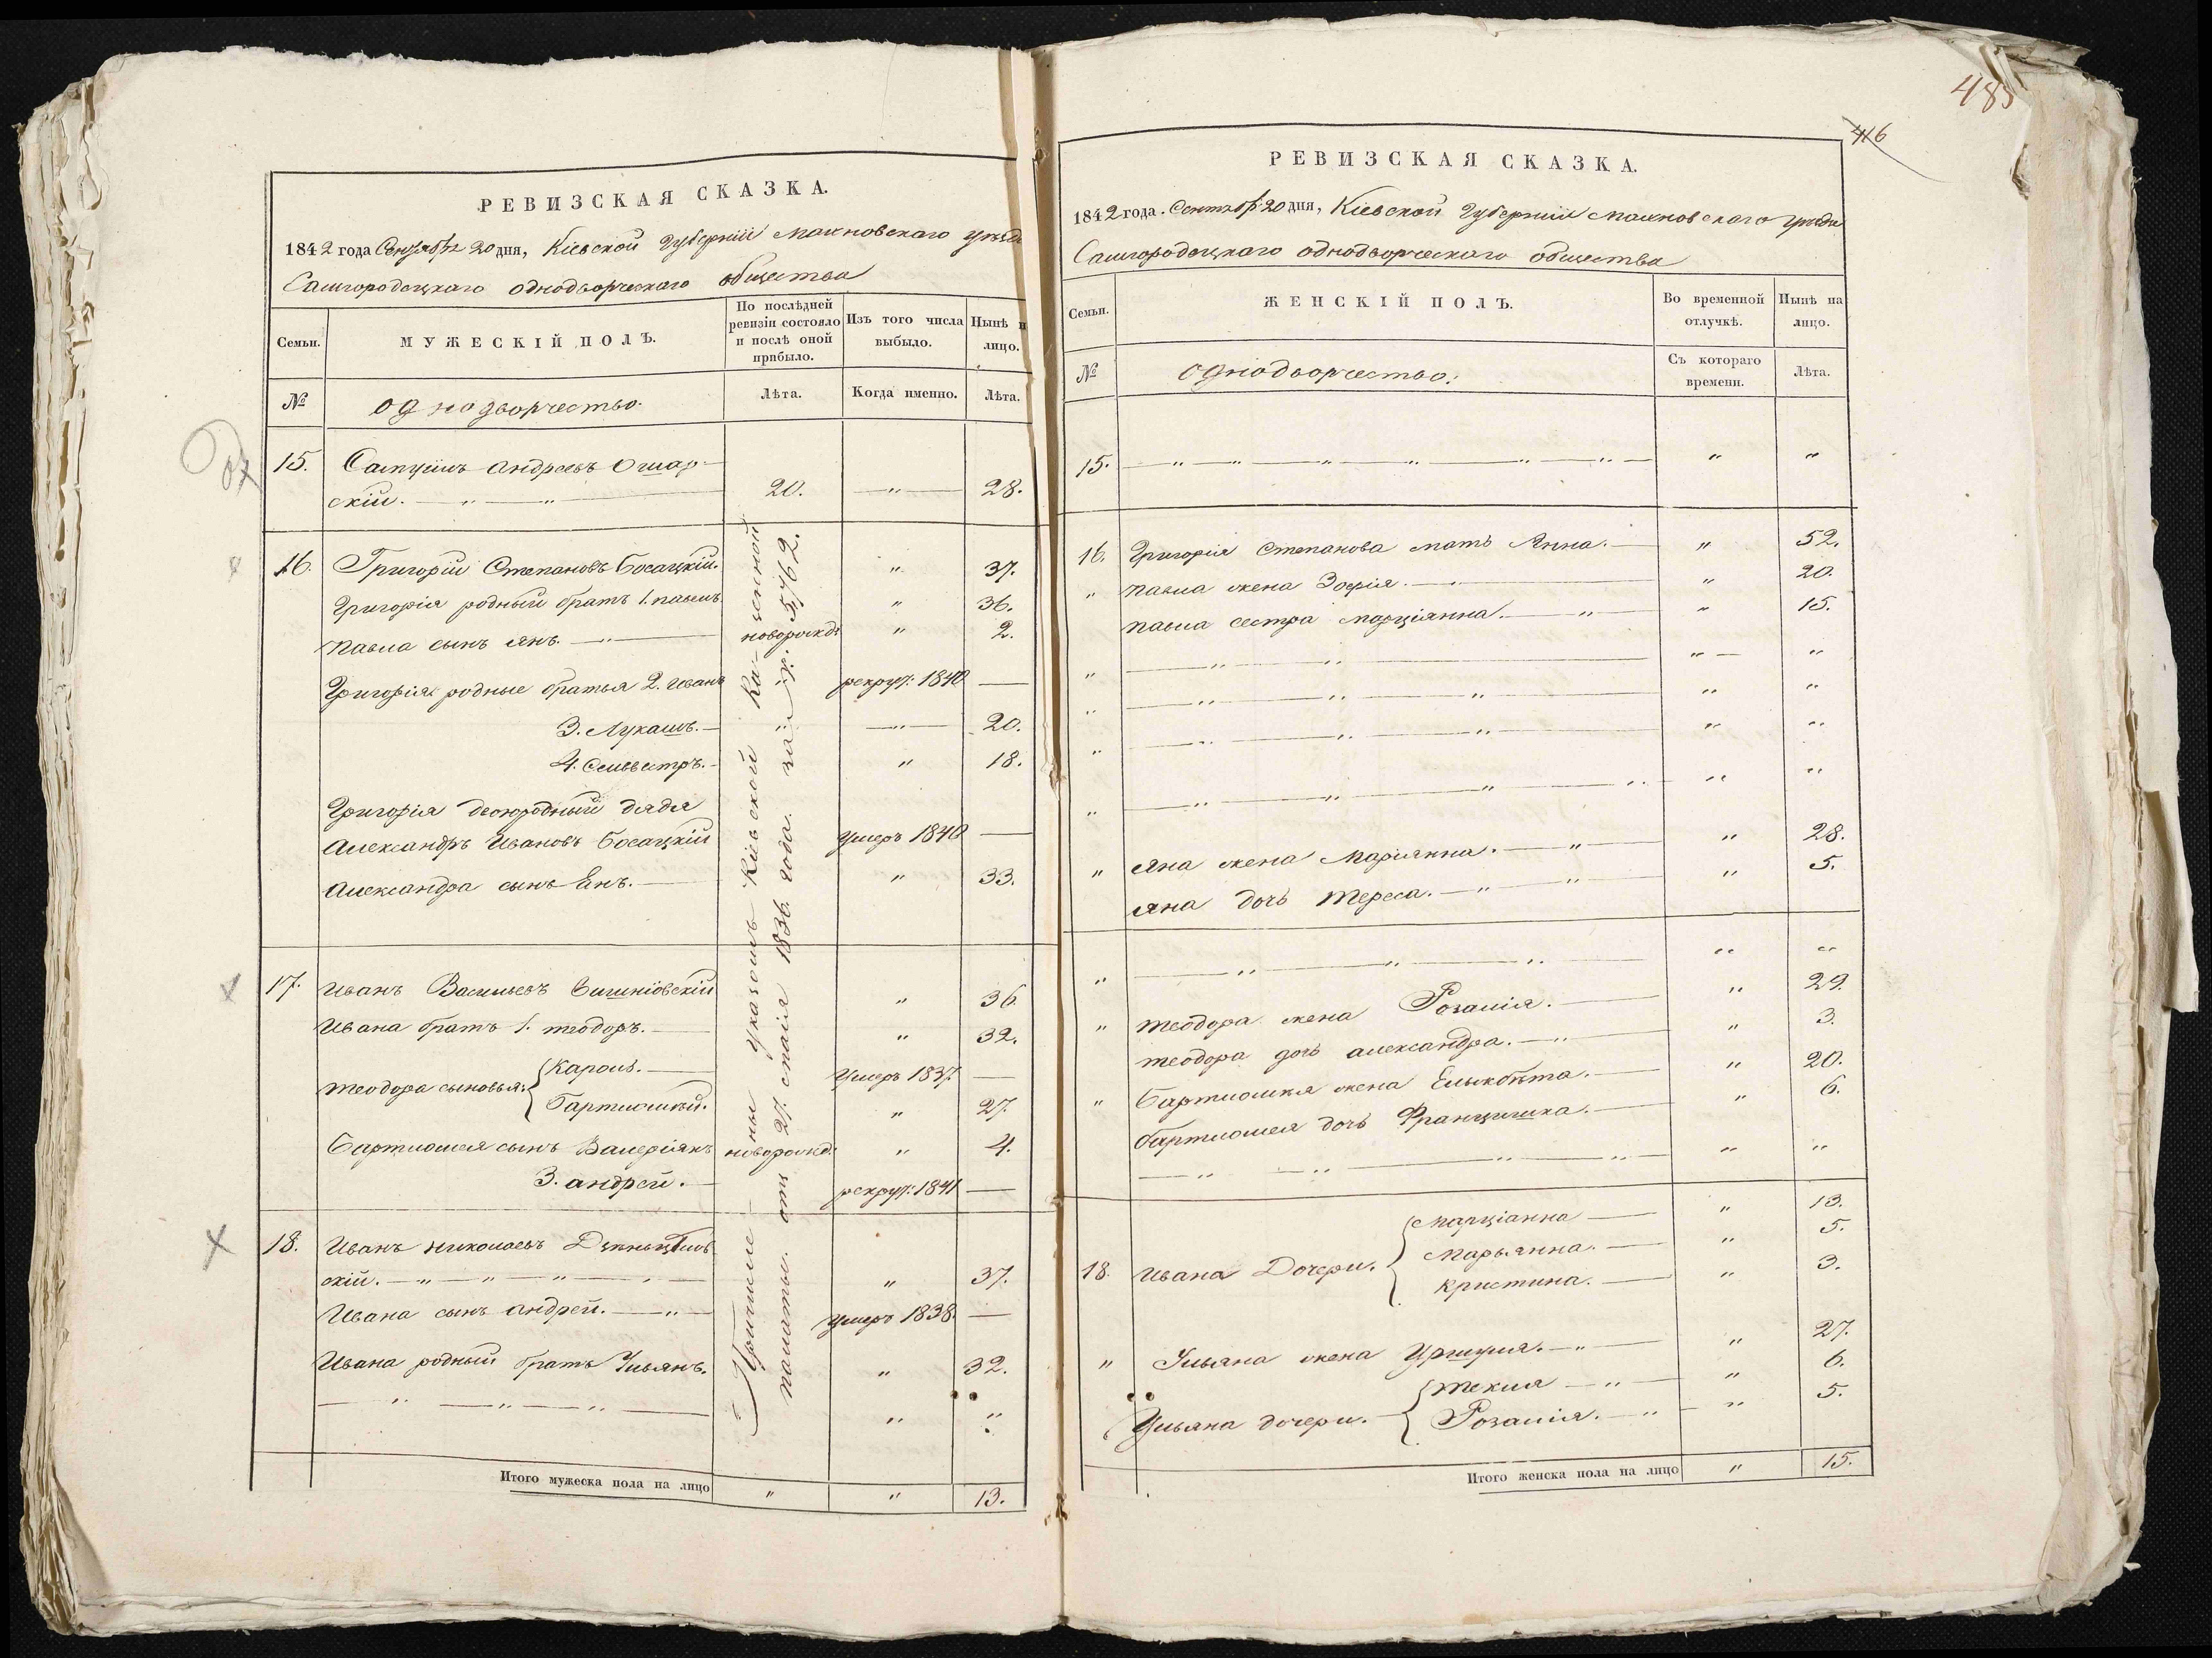 РЕВИЗСКАЯ СКАЗКА.
1842 года Сентября 20 дня, Кіевской губерніи Махновскаго уѣзда
Самгородецкаго однодворческаго общества
Семьи.
МУЖЕСКІЙ ПОЛЪ.
По послѣдней ревизіи состояло и послѣ оной прибыло.
Изъ того числа выбыло.
Нынѣ н лицо.
№
однодворчество.
Лѣта.
Когда именно.
Лѣта.
15. Андреевъ Ошар-
скій. — „ — „ — 20. — „ — 28.
16. Григорій Степановъ Босацкій. „ 37.
Григорія родный братъ 1. павелъ „ 36.
павла сынъ Янъ. — „ — новорожд: „ 2.
Григорія родные братья 2. Иванъ „ рекрут: 1840 —
3. Лукашъ. — „ — „ — 20.
4. Силвестръ. — „ 18.
Григорія двоюродный дядя
Александръ Ивановъ Босацкій умеръ 1840 —
Александра сынъ Янъ. — „ 33.
17. Иванъ Васильевъ „ 36
Ивана братъ 1. теодоръ. — „ 32.
теодора сыновья: Кароль. — умеръ 1837 —
„ 27.
Бартломея сынъ Валеріянъ новорожд: „ 4.
3. андрей. — рекрут: 1841 —
18. Иванъ николаевъ
скій. — „ — „ — „ — „ 37.
Ивана сынъ андрей. — „ — умеръ 1838. —
Ивана родный братъ Ульянъ. „ 32.
— „ — „ — „ — „ „
Причислены указомъ Кіевской Казенной
палаты. отъ 27. 1836. года. за № 5762.
Итого мужеска пола на лицо „ „ 13.
485
416
РЕВИЗСКАЯ СКАЗКА.
1842 года. Сентябр 20 дня, Кіевской губерніи Махновскаго уѣзда
Самгородецкаго однодворческаго общества
Семьи.
ЖЕНСКІЙ ПОЛЪ.
Во временной отлучкѣ.
Нынѣ на лицо.
№
однодворчество:
Съ котораго времени.
Лѣта.
15. — „ — „ — „ — „ — „ — „ — „ „
16. Григорія Степанова мать Анна. — „ 52.
„ павла жена Зофія. — „ 20.
павла сестра Марціянна. — „ „ 15.
„ — „ — „ — „ — „
„ — „ — „ — „ — „ „
„ — „ — „ — „ — „ „
„ — „ — „ — „ — „ — „ „
„ Яна жена Маріянна. — „ — „ 28.
Яна дочь Тереса. — „ — „ — „ 5.
„ — „ — „ — „ — „ „
„ теодора жена Розалія. — „ 29.
теодора дочь александра. — „ — „ 3.
„ жена Елыжбѣта. — „ 20.
бартломея дочь Францишка. — „ 6.
— „ — „ — „ — „ — „ „
18. Ивана Дочери. Марціанна — „ 13.
Марьянна. — „ 5.
кристина. — „ 3.
„ Ульяна жена Уршуля. — „ — „ 27.
Ульяна дочери. текля — „ — „ 6.
Розалія. — „ — „ 5.
Итого женска пола на лицо „ 15.